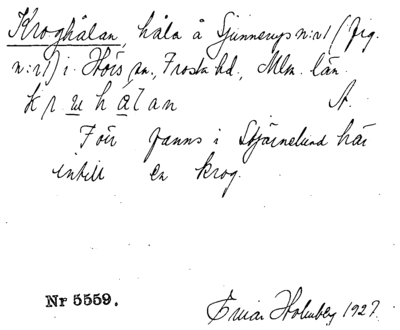 Kroghålan, håla å Sjunnerup n:r 1 (fig.
n:r 1) i Hörs sn, Frosta hd, Mlm. län.
kruhålan A.
Förr fanns i Stjärnelund här
intill en krog.
Nr 5559. Einar Holmberg 1927.